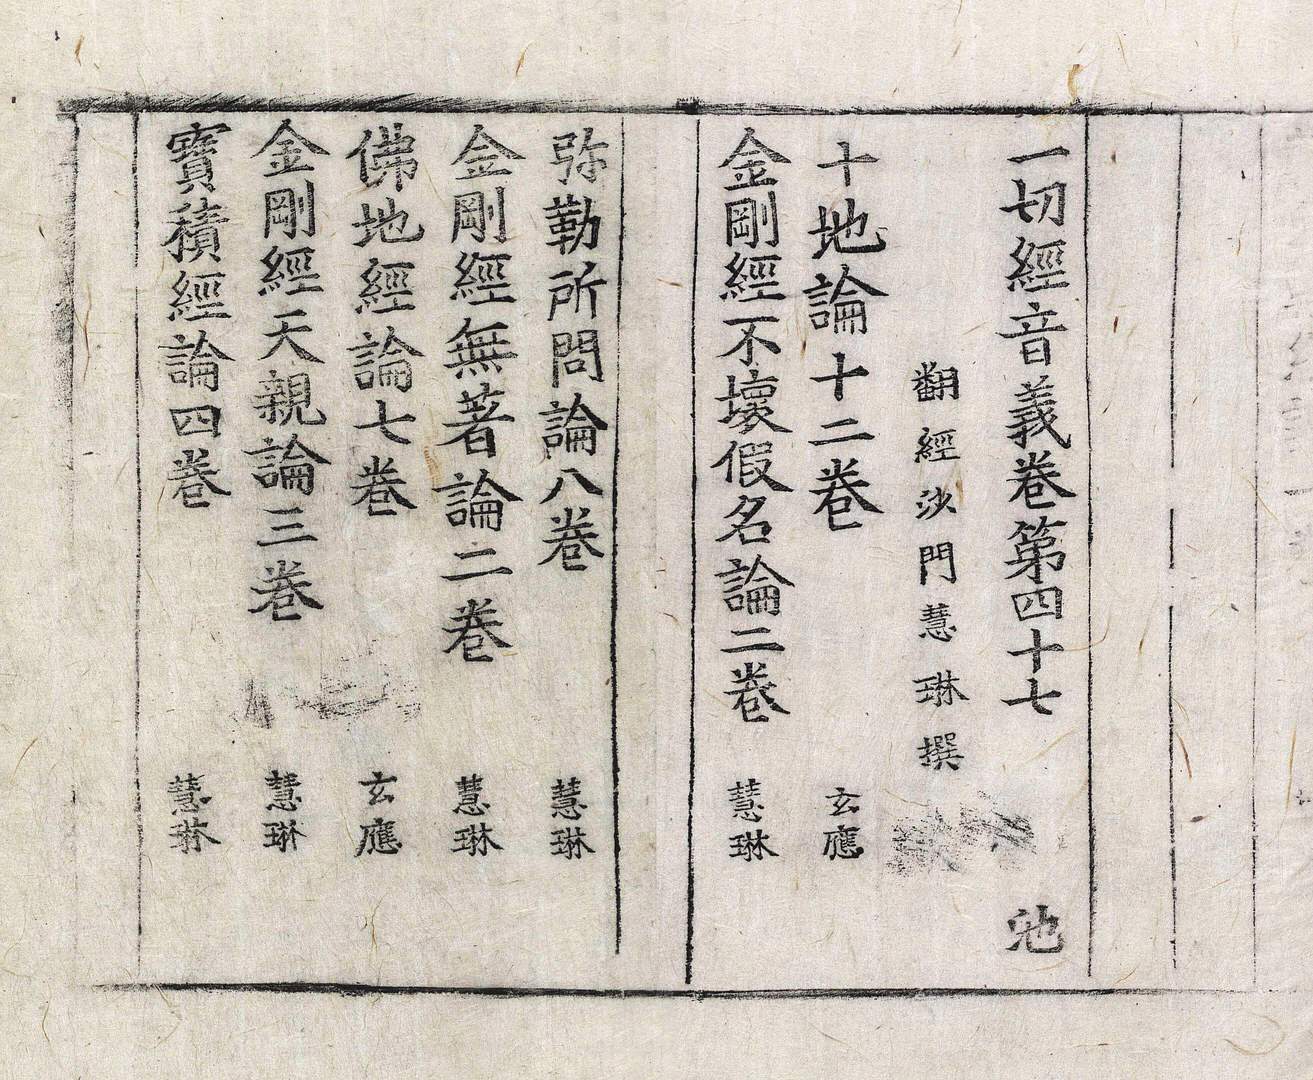 一切經音義卷第四十七 池
翻經沙門慧琳撰
十地論十二卷 玄應
金剛經不壞假名論二卷 慧琳
弥勒所問論八卷 慧琳
金剛經無著論二卷 慧琳
佛地經論七卷 玄應
金剛經天親論三卷 慧琳
寶積經論四卷 慧琳